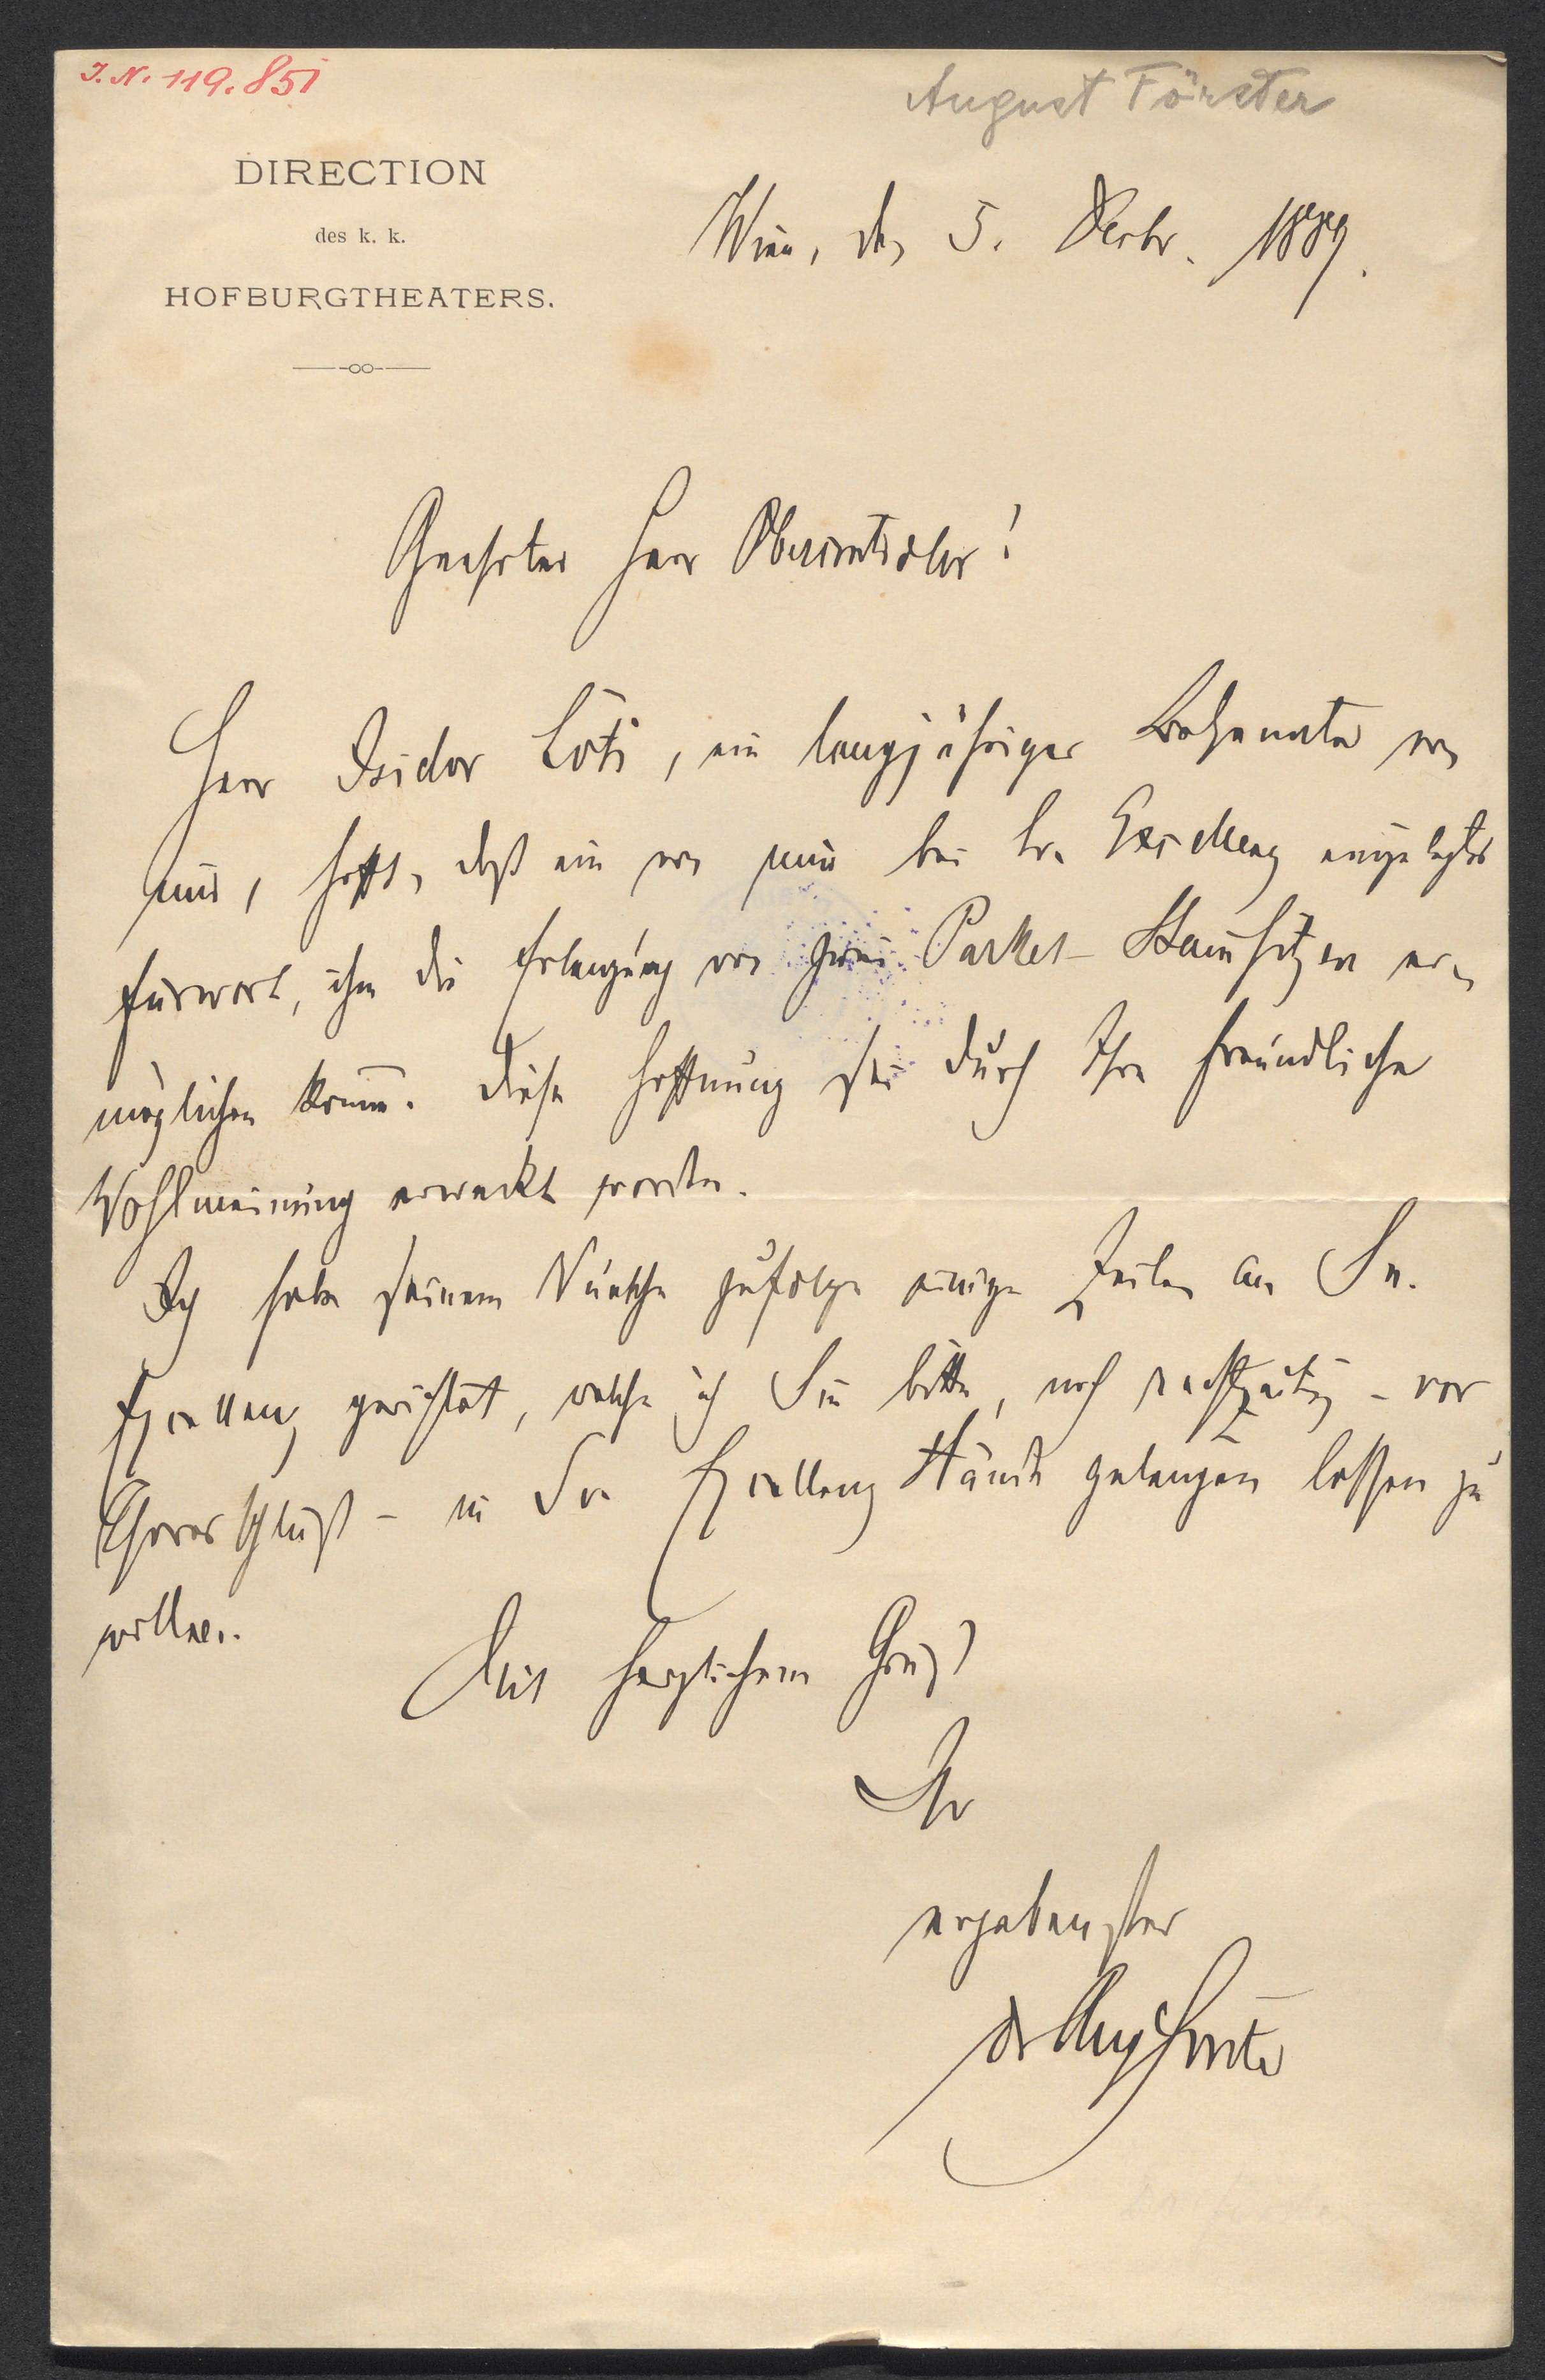 J. N. 119.851
August Förster
DIRECTION
des k. k.
HOFBURGTHEATERS.
Wien, den 5. Decbr. 1889.
Geehrter Herr
Herr Isidor Löti, ein langjähriger Bekannter von
mir, hofft, daß ein von mir bei Sr. Excellenz eingelegtes
Fürwort, ihm die Erlangung von zwei Parket-Stammsitzen er-
möglichen könne. Diese Hoffnung sei durch Ihre freundliche
Wohlmeinung erweckt worden.
Ich habe seinem Wunsche zufolge einige Zeilen an Se.
Excellenz gerichtet, welche ich Sie bitte, noch rechtzeitig - vor
Thorschluß - in Sr. Excellenz Hände gelangen lassen zu
wollen.
Mit herzlichem Gruß
Ihr
ergebenster
Dr Aug Förster